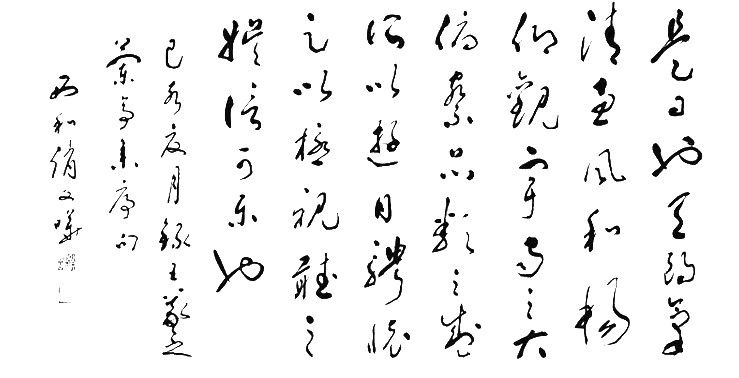 是日也天朗氣
清惠風和暢
仰觀宇宙之大
俯察品類之盛
所以遊目騁懷
足以極視聽之
娛信可樂也
己亥夏月錄王羲之
蘭亭集序句
西和